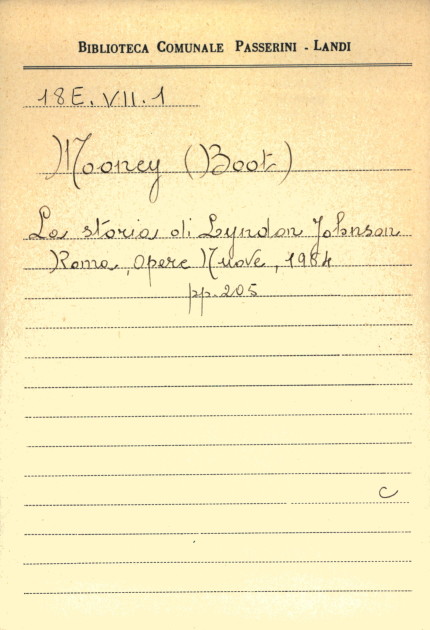 BIBLIOTECA COMUNALE PASSERINI - LANDI
18E. VII. 1
Mooney (Boot)
La storia di Lyndon Johnson
Roma, Opere Nuove, 1964
pp. 205
C